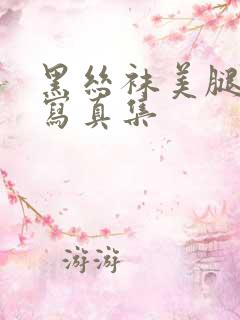 黑丝袜美腿
写真集
游游